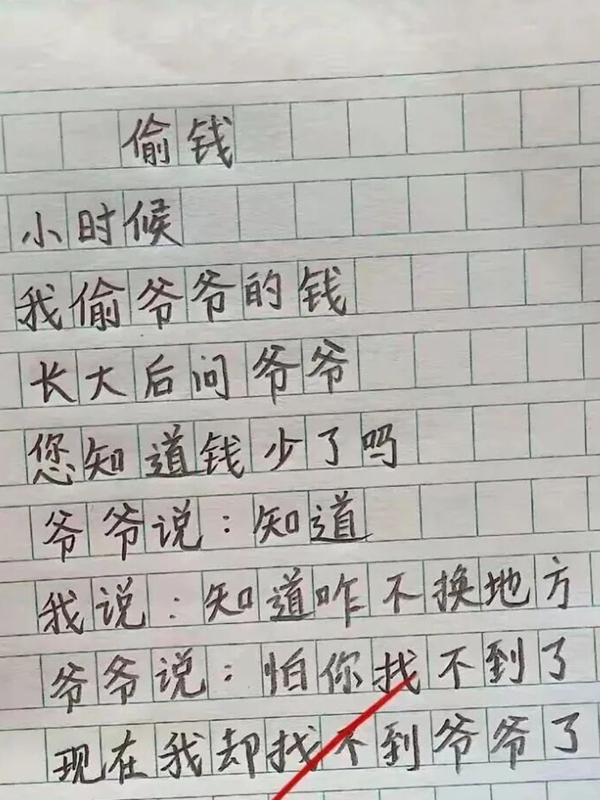 偷钱
小时候
我偷爷爷的钱
长大后问爷爷
您知道钱少了吗
爷爷说:知道
我说:知道咋不换地方
爷爷说:怕你找不到了
现在我却找不到爷爷了